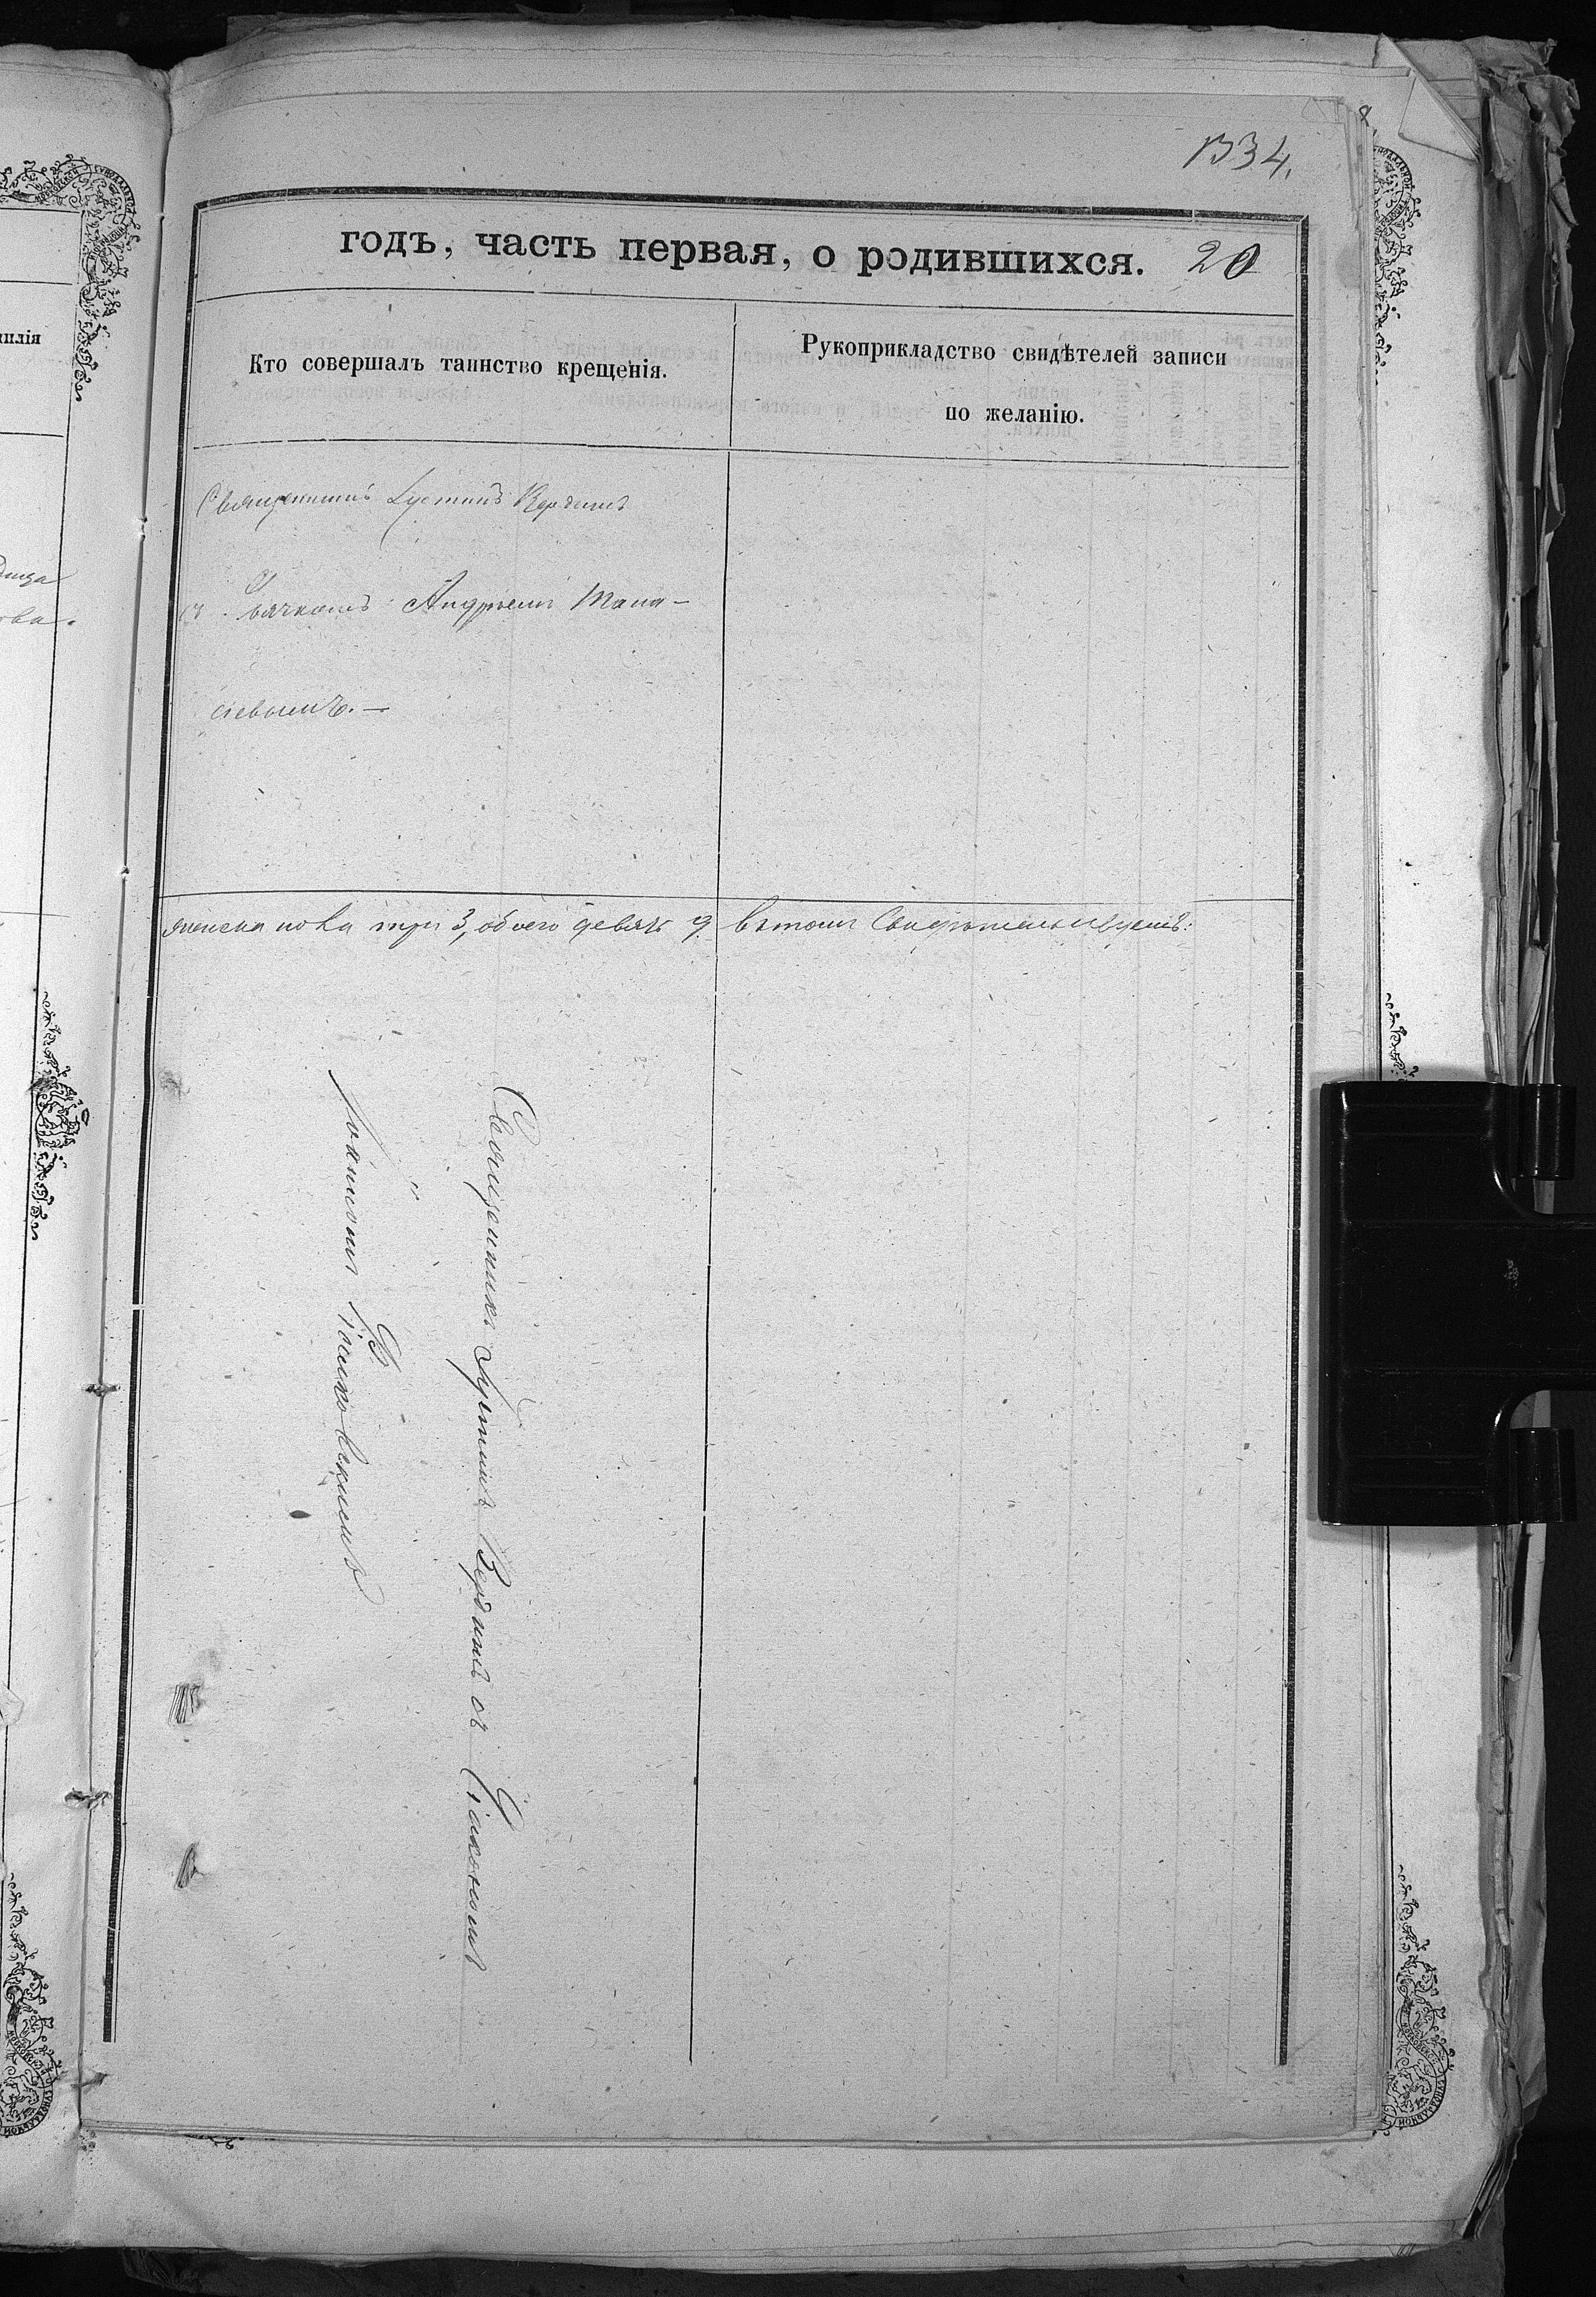 1334.
годъ, часть первая, о родившихся. 20
Кто совершалъ таинство крещенія.
Рукоприкладство свидѣтелей записи
по желанію.
Священникъ Іустинъ
съ Дьячкомъ Андреемъ Тана-
сіевымъ. —
женска пола три 3, обоего девять 9. въ томъ Свидѣтельствуемъ:
Священникъ Іустинъ съ Діакономъ
Іоанномъ